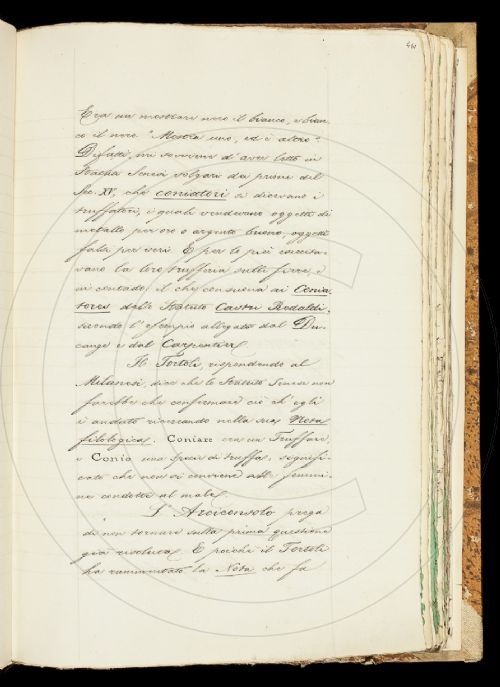 Era un mostrare nero il bianco, e bian-
co il nero. "Mostra uno, ed è altro".
Difatti, mi sovviene d'aver letto in
Senesi volgari dei primi del
Sec. XV, che coniatori si dicevano i
truffatori, i quali vendevano oggetti di
metallo per oro o argento buono, oggetti
falsi per veri. E per lo più esercita-
vano la loro truffieria sulle fiere, e
in contado: il che consuona ai Conia-
tores dello Statuto Castri Redaldi,
secondo l'esempio allegato dal Du-
cange e dal Carpentier.
Il Tortoli, rispondendo al
Milanesi, dice che lo Statuto Senese non
farebbe che confermare ciò ch'egli
è andato ricercando nella sua Nota
filologica. Coniare era un Truffare,
e Conio una specie di truffa; signifi-
cato che non si conviene alle femmi-
ne condotte al male.
L'Arciconsolo prega
di non tornare sulla prima questione
già risoluta. E poichè il Tortoli
ha rammentato la Nota che fa